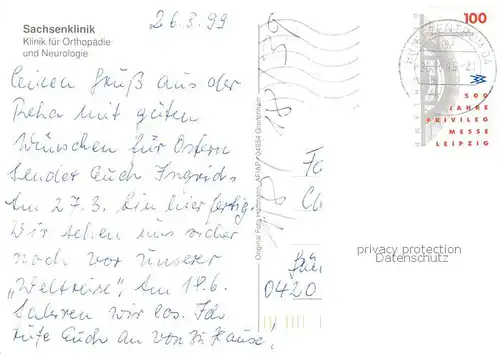 26.3.99
Sachsenklinik
Klinik für Orthopädie
und Neurologie
Einen Gruß aus der
Reha mit guten
Wünschen für Ostern
sendet Euch Ingrid.
Am 27.3. bin hier fertig.
Wir sehen uns sicher
noch vor unserer
„Weltreise“, Am 19.6.
fahren wir los. Ich
rufe Euch an von zu Hause!
04654
100
500
JAHRE
PRIVILEG
MESSE
LEIPZIG
0420
privacy protection
Datenschutz